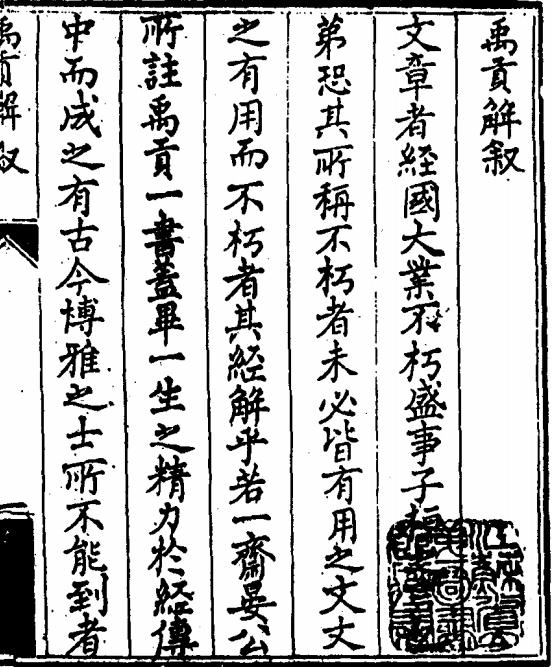 禹貢解叙
文章者経國大業不朽盛事子桓
苐恐其所稱不朽者未必皆有用之文文
之有用而不朽者其経解乎若一齋晏公
所註禹貢一書蓋畢一生之精力於経傳
中而成之有古今愽雅之士所不能到者
禹貢解叙